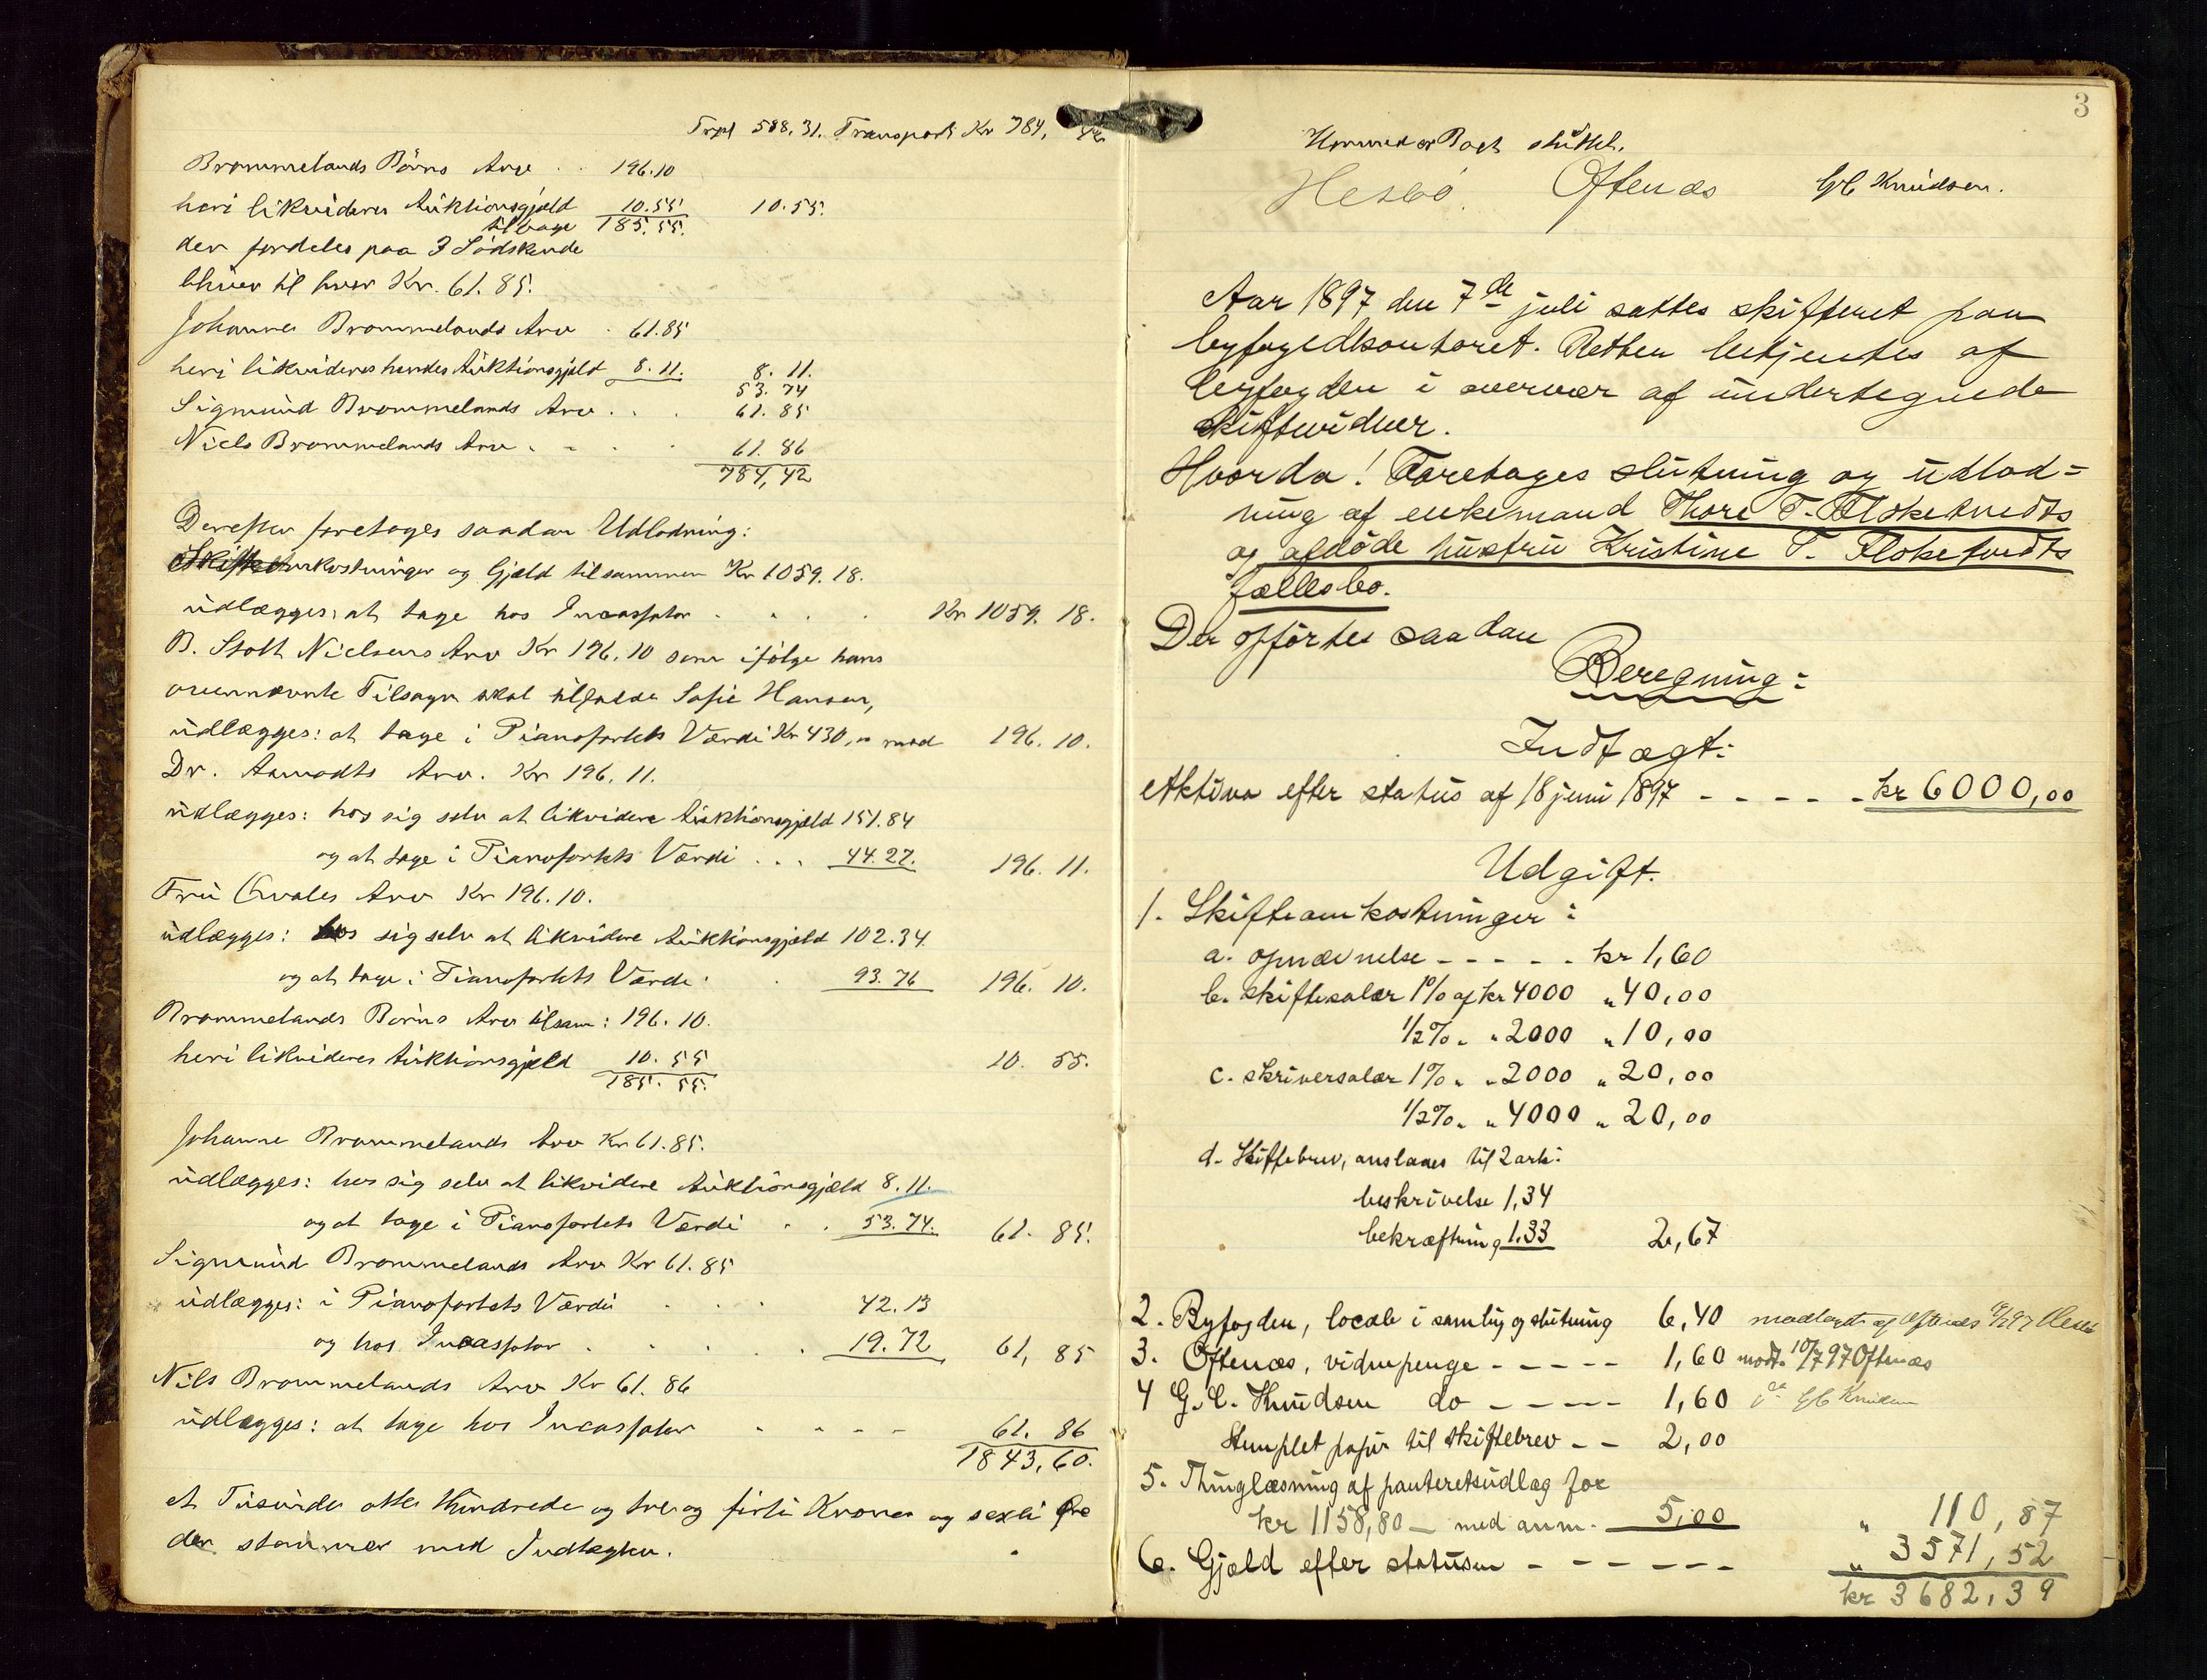 Trpt 588.31. Transport Kr 784, 42
Brommelands Börns Arv . . 196.10
heri likvideres Auktionsgjæld 10.55 10.55.
tilbage 185.55.
der fordeles paa 3 Sødskende
bliver til hver Kr. 61.85.
Johanne Brommelands Arv . 61.85
heri likvideres hendes Auktionsgjæld 8.11. 8. 11.
53. 74
Sigmund Brommelands Arv . . . 61. 85
Niels Brommelands Arv . . . . 61. 86
784,42
Derefter foretages saadan Udlodning:
omkostninger og Gjæld tilsammen Kr 1059.18.
udlægges: at tage hos Incassator . . . Kr 1059. 18.
B. Stolt Nielsens Arv Kr 196.10 som ifølge hans
ovennævnte Tilsagn skal tilfalde Sofie Hansen,
udlægges: at tage i Pianofortets Værdi Kr 430, " med 196. 10.
Dr. Aamodts Arv. Kr 196.11.
udlægges: hos sig selv at likvidere Auktionsgjæld 151.84
og at tage i Pianofortets Værdi . . . 44.27. 196. 11.
Fru Qvales Arv Kr 196.10.
udlægges: hos sig selv at likvidere Auktionsgjæld 102.34
og at tage i Pianofortets Værdi . . 93.76 196. 10.
Brommelands Börns Arv tilsam: 196.10.
heri likvideres Auktionsgjæld 10. 55 10. 55.
185. 55.
Johanne Brommelands Arv Kr 61.85.
udlægges: hos sig selv at likvidere Auktionsgjæld 8.11.
og at tage i Pianofortets Værdi . . 53.74. 61. 85.
Sigmund Brommelands Arv Kr 61.85
udlægges: i Pianofortets Værdi . . . 42.13
og hos Incassator . . . . 19.72 61, 85
Nils Brommelands Arv Kr 61.86
udlægges: at tage hos Incassator . - - - 61. 86
1843,60.
et Tusinde otte Hundrede og tre og firti Kroner og sexti Øre
der stemmer med Indtægten.
3
Hermed er Boet sluttet.
Hesbö. Oftenæs G C Knudsen.
Aar 1897 den 7de juli sattes skifteret paa
byfogedkontoret. Retten betjentes af
byfogden i overvær af undertegnede
skiftevidner.
Hvorda! Foretages slutning og udlod=
ning af enkemand Thore T. Flöketvedts
og afdøde hustru Kristine T. Floketvedts
fællesbo.
Der opførtes saadan
Beregning:
Indtægt:
Aktiva efter status af 18 juni 1897 - - - - - kr 6000,00
Udgift.
1. Skifteomkostninger:
a. opnævnelse - - - - - kr 1,60
b. skiftesalær 1% af kr 4000 " 40,00
1/2% " " 2000 " 10,00
c. skriversalær 1% " " 2000 " 20,00
1/2% " " 4000 " 20,00
d. Skiftebrev, anslaaes til 2 ark:
beskrivelse 1,34
bekræftning 1.33 2,67
2. Byfogden, locale i samling og slutning 6,40
3. Oftenæs, vidnepenge - - - - - 1,60 modt. 10/7 97 Oftenæs
4 G. C. Knudsen do - - - - - 1,60 do G C Knudsen
Stemplet papir til skiftebrev - - 2,00
5. Thinglæsning af panteretsudlæg for
kr 1158,80 - med anm. - 5,00 " 110,87
6. Gjæld efter statusen - - - - - - " 3571,52
kr 3682,39